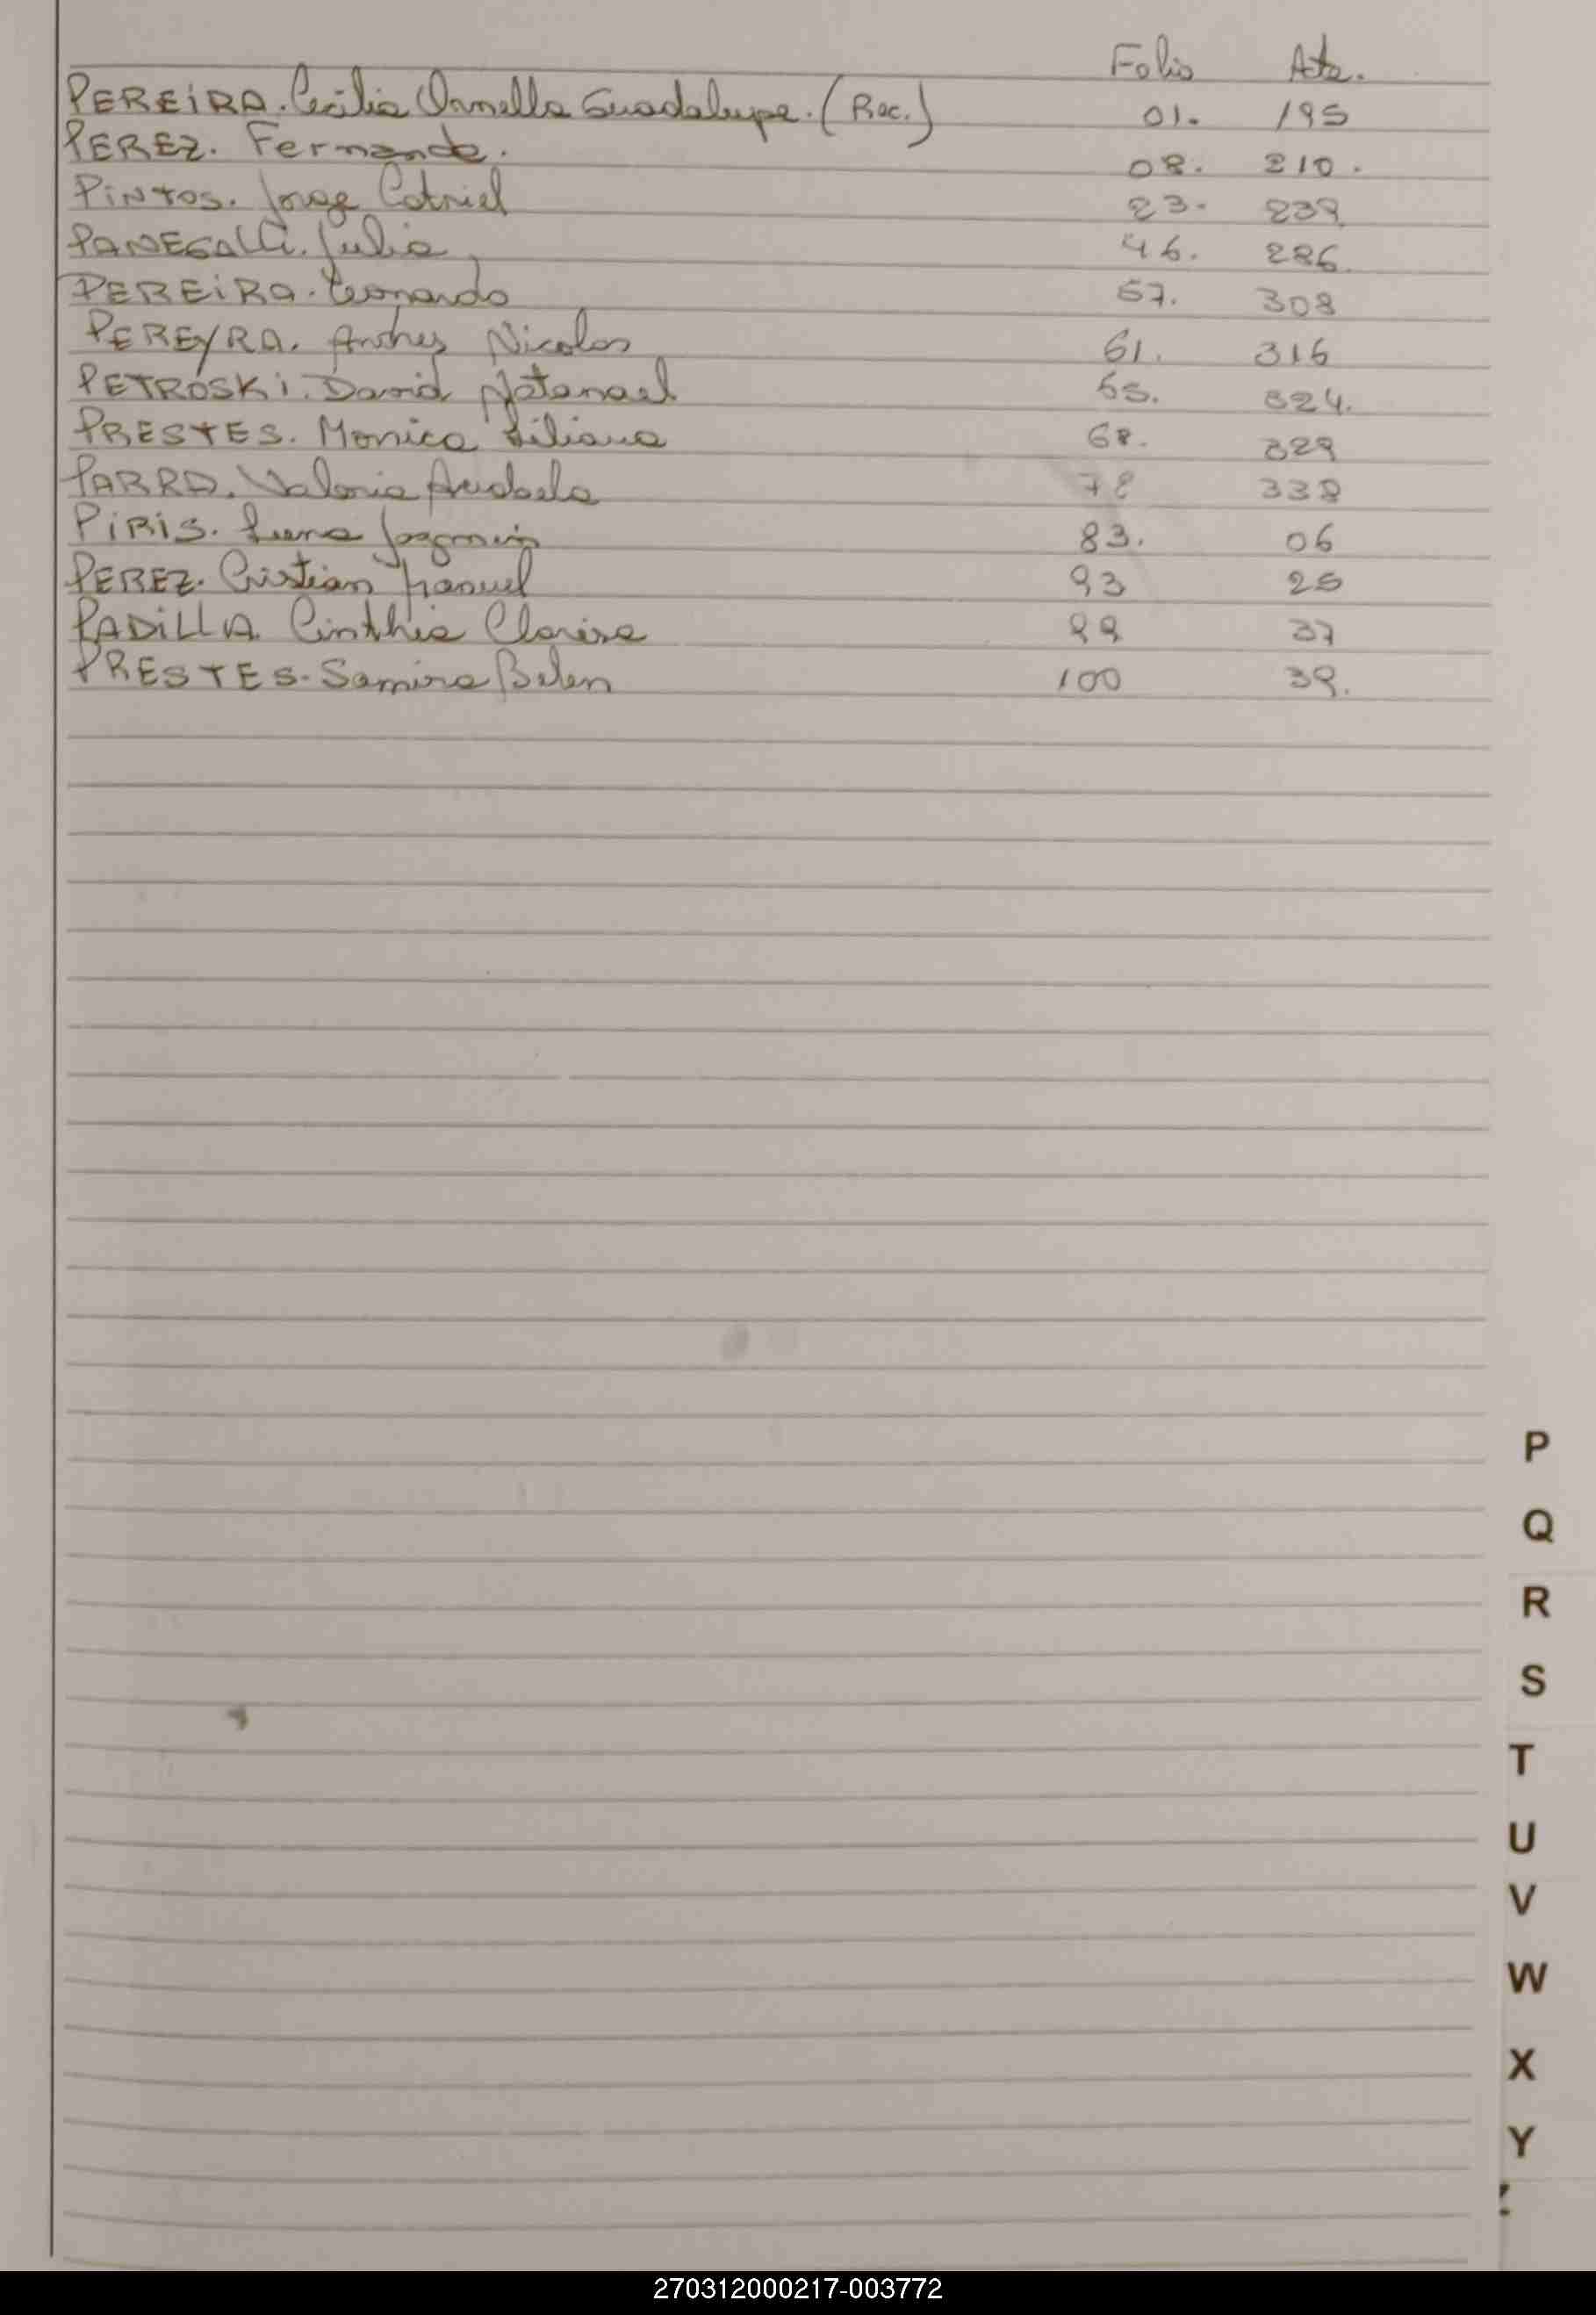 Folio Acta.
PEREIRA. Cecilia Ornella Guadalupe. (Rec.) 01. 195
PEREZ. Fernando. 08. 210.
PINTOS. Jorge Catriel 23. 239
PANEGALLI. Julia 46. 286.
PEREIRA. Leonardo 57. 308
PEREYRA. Andres Nicolas 61. 316
PETROSKI. David Natanael 65. 324.
PRESTES. Monica Liliana 68. 329
PARRA. Valeria Anabela 78 338
PIRIS. Luana Jazmin 83. 06
PEREZ. Cristian Manuel 93 25
PADILLA. Cinthia Clarisa 99 37
PRESTES. Samira Belen 100 39.
P
Q
R
S
T
U
V
W
X
Y
Z
270312000217-003772